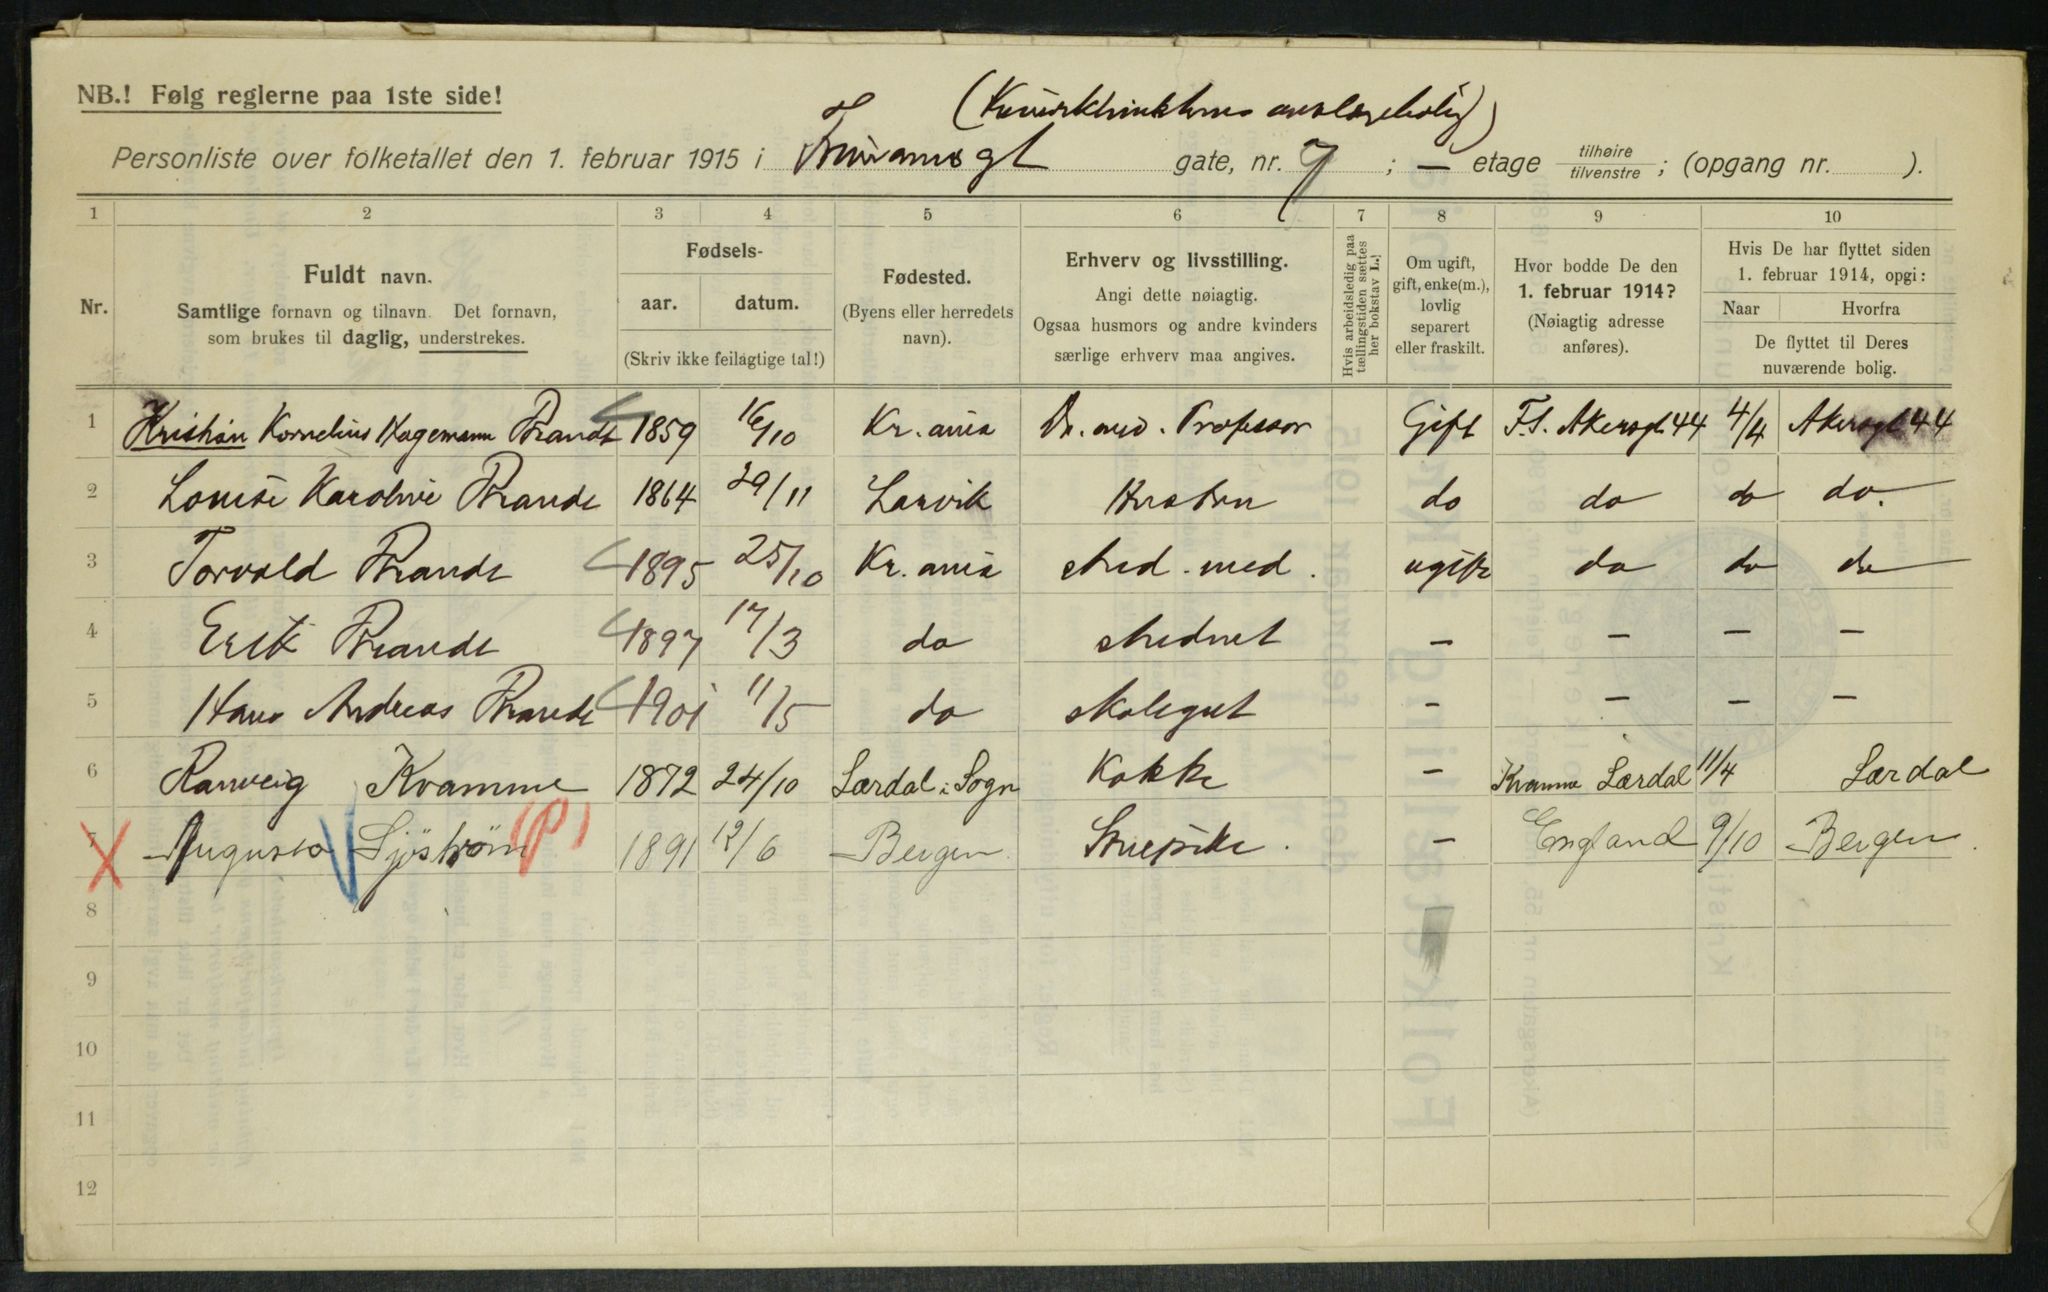 NB.! Følg reglerne paa 1ste side!
(Kvindeklinikkens overlægebolig)
Personliste over folketallet den 1. februar 1915 i gate, nr. 7 ; — etage tilhøire tilvenstre ; (opgang nr. ).
1 2 3 4 5 6 7 8 9 10
Nr.
Fuldt navn.
Samtlige fornavn og tilnavn. Det fornavn,
som brukes til daglig, understrekes.
Fødsels-
aar. datum.
(Skriv ikke feilagtige tal!)
Fødested.
(Byens eller herredets
navn).
Erhverv og livsstilling.
Angi dette nøiagtig.
Ogsaa husmors og andre kvinders
særlige erhverv maa angives.
Hvis arbeidsledig paa
tællingstiden sættes
her bokstav L.!
Om ugift,
gift, enke(m.),
lovlig
separert
eller fraskilt.
Hvor bodde De den
1. februar 1914?
(Nøiagtig adresse
anføres).
Hvis De har flyttet siden
1. februar 1914, opgi:
Naar Hvorfra
De flyttet til Deres
nuværende bolig.
1 Kristian Kornelius Hagemann Brandt 1859 16/10 Kr.ania Dr. med. Professor Gift F.S. Akersgt. 44 4/4 Akersgt 44
2 Louise Karoline Brandt 1864 29/11 Larvik Hustru do do do do.
3 Torvald Brandt 1895 25/10 Kr.ania stud. med. ugift do do do
4 Erik Brandt 1897 17/3 do student — — — —
5 Hans Andreas Brandt 1901 11/5 do skolegut - — — —
6 Ranveig Kvamme 1872 24/10 Lærdal i Sogn Kokke — Kvamme Lærdal 11/4 Lærdal
X 7 Augusta Sjöström (P) 1891 12/6 Bergen Stuepike. — England 9/10 Bergen.
8
9
10
11
12